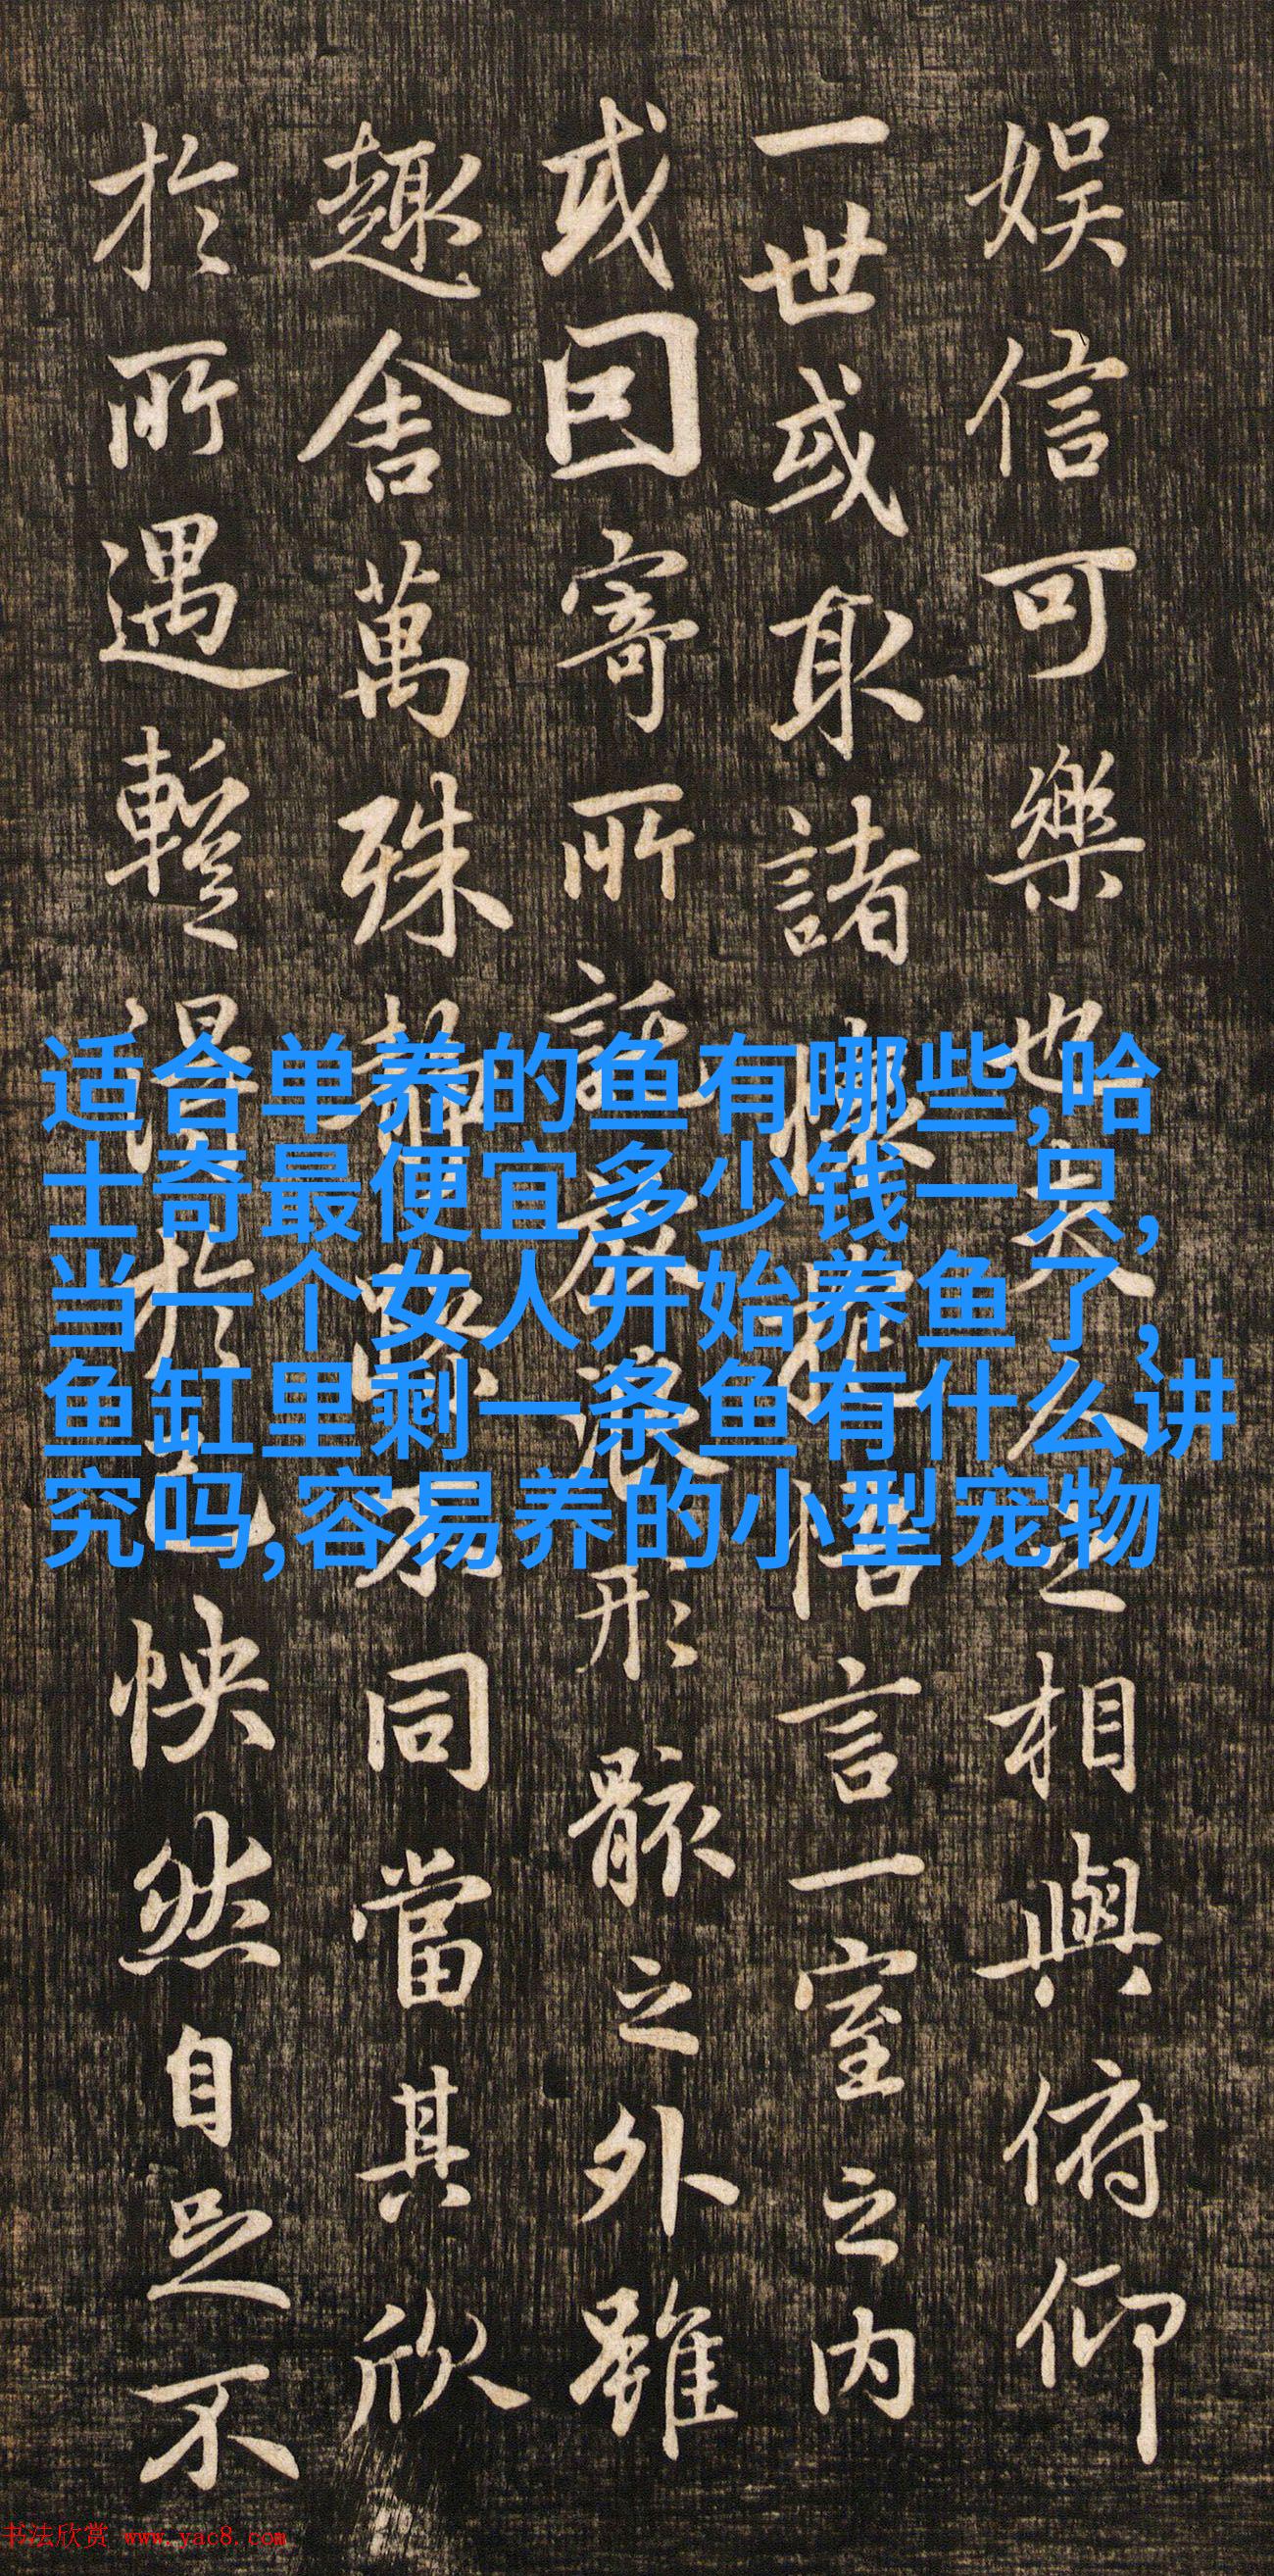 娱信可樂也夫人之相與俯仰
一世或取諸懷抱悟言一室之内
或因寄所託放浪形骸之外雖
趣舍萬殊静躁不同當其欣
於所遇暫得於己怏然自足不
适合单养的鱼有哪些,哈
士奇最便宜多少钱一只,
当一个女人开始养鱼了,
鱼缸里剩一条鱼有什么讲
究吗,容易养的小型宠物
书法欣赏 www.yac8.com